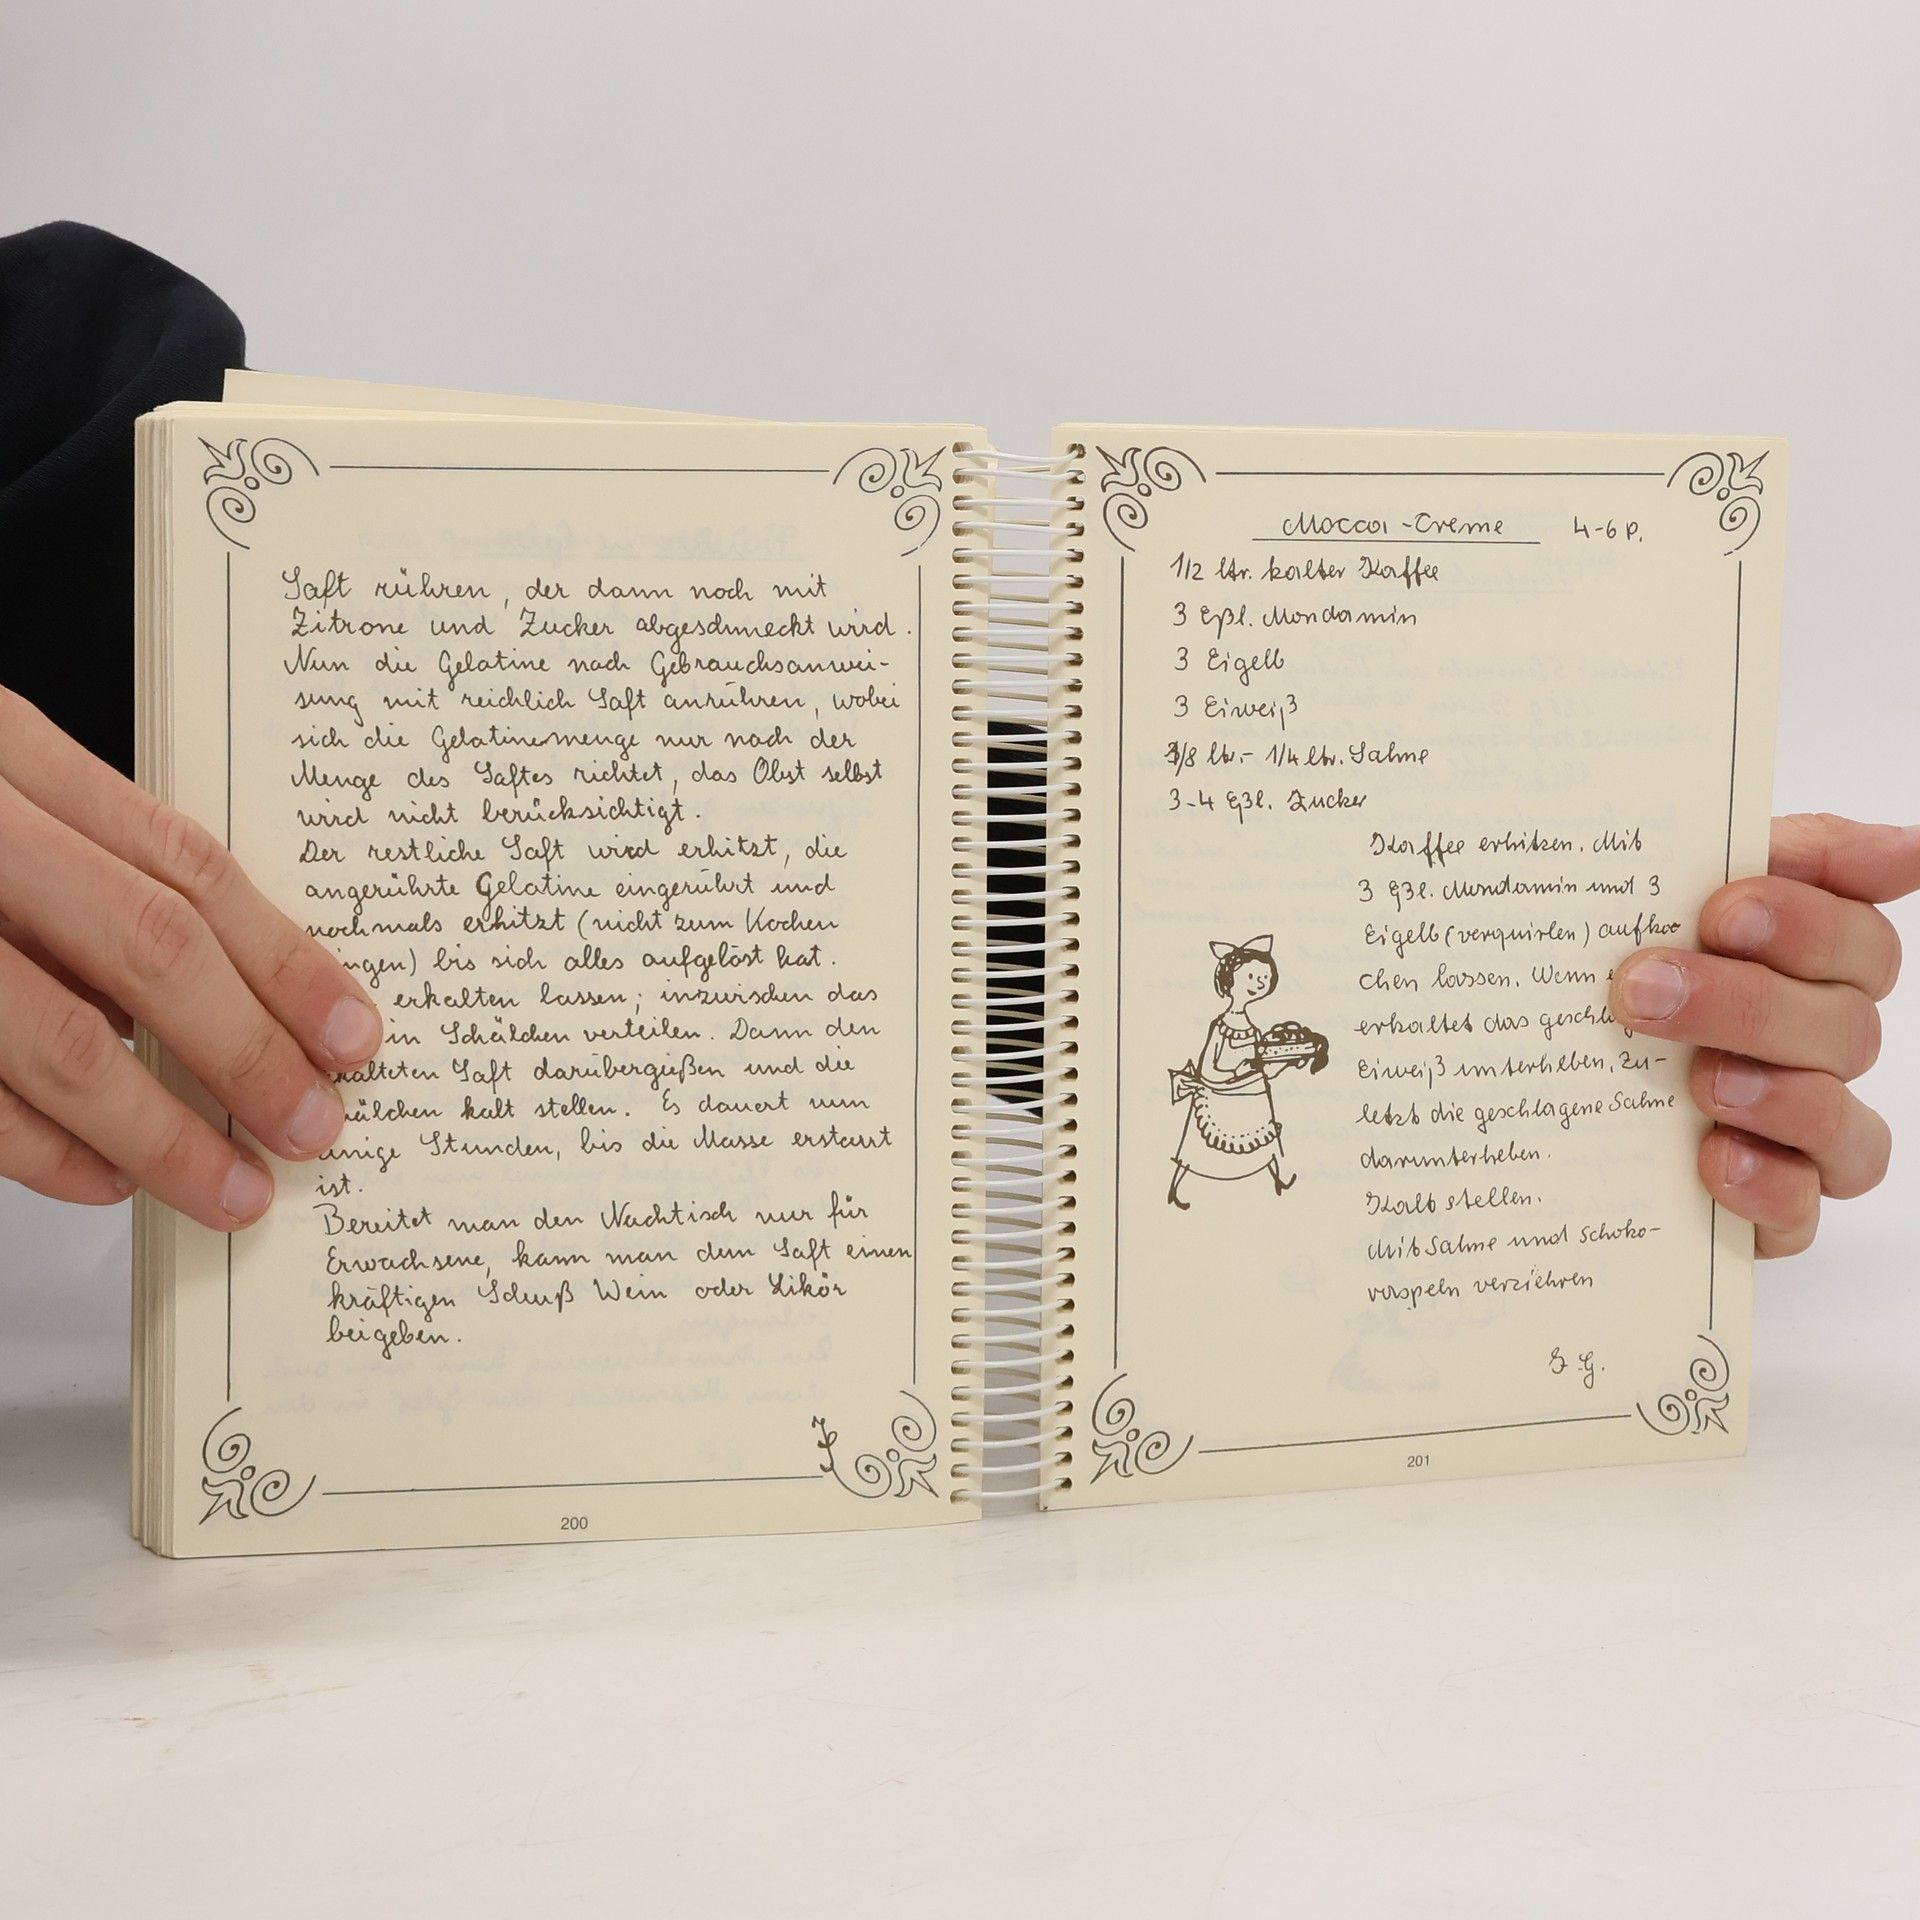 Saft rühren, der dann noch mit
Zitrone und Zucker abgeschmeckt wird.
Nun die Gelatine nach Gebrauchsanwei-
sung mit reichlich Saft anrühren, wobei
sich die Gelatinemenge nur nach der
Menge des Saftes richtet, das Obst selbst
wird nicht berücksichtigt.
Der restliche Saft wird erhitzt, die
angerührte Gelatine eingerührt und
nochmals erhitzt (nicht zum Kochen
ngen) bis sich alles aufgelöst hat.
erkalten lassen; inzwischen das
in Schälchen verteilen. Dann den
kalteten Saft darübergießen und die
hälchen kalt stellen. Es dauert nun
einige Stunden, bis die Masse erstarrt
ist.
Bereitet man den Nachtisch nur für
Erwachsene, kann man dem Saft einen
kräftigen Schuß Wein oder Likör
beigeben.
200
Mocca-Creme 4-6 P.
1/2 ltr. kalter Kaffee
3 Eßl. Mondamin
3 Eigelb
3 Eiweiß
1/8 ltr.- 1/4 ltr. Sahne
3-4 Eßl. Zucker
Kaffee erhitzen. Mit
3 Eßl. Mondamin und 3
Eigelb (verquirlen) aufko
chen lassen. Wenn e
erkaltet das geschlag
Eiweiß unterheben, Zu-
letzt die geschlagene Sahne
darunterheben.
Kalt stellen.
Mit Sahne und Schoko-
raspeln verziehren
G.
201